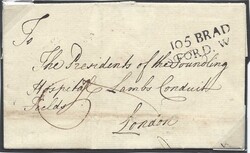 To
105 BRAD
FORD. W
The Presidents of the Foundling
Hospital Lambs Conduit
Fields
London